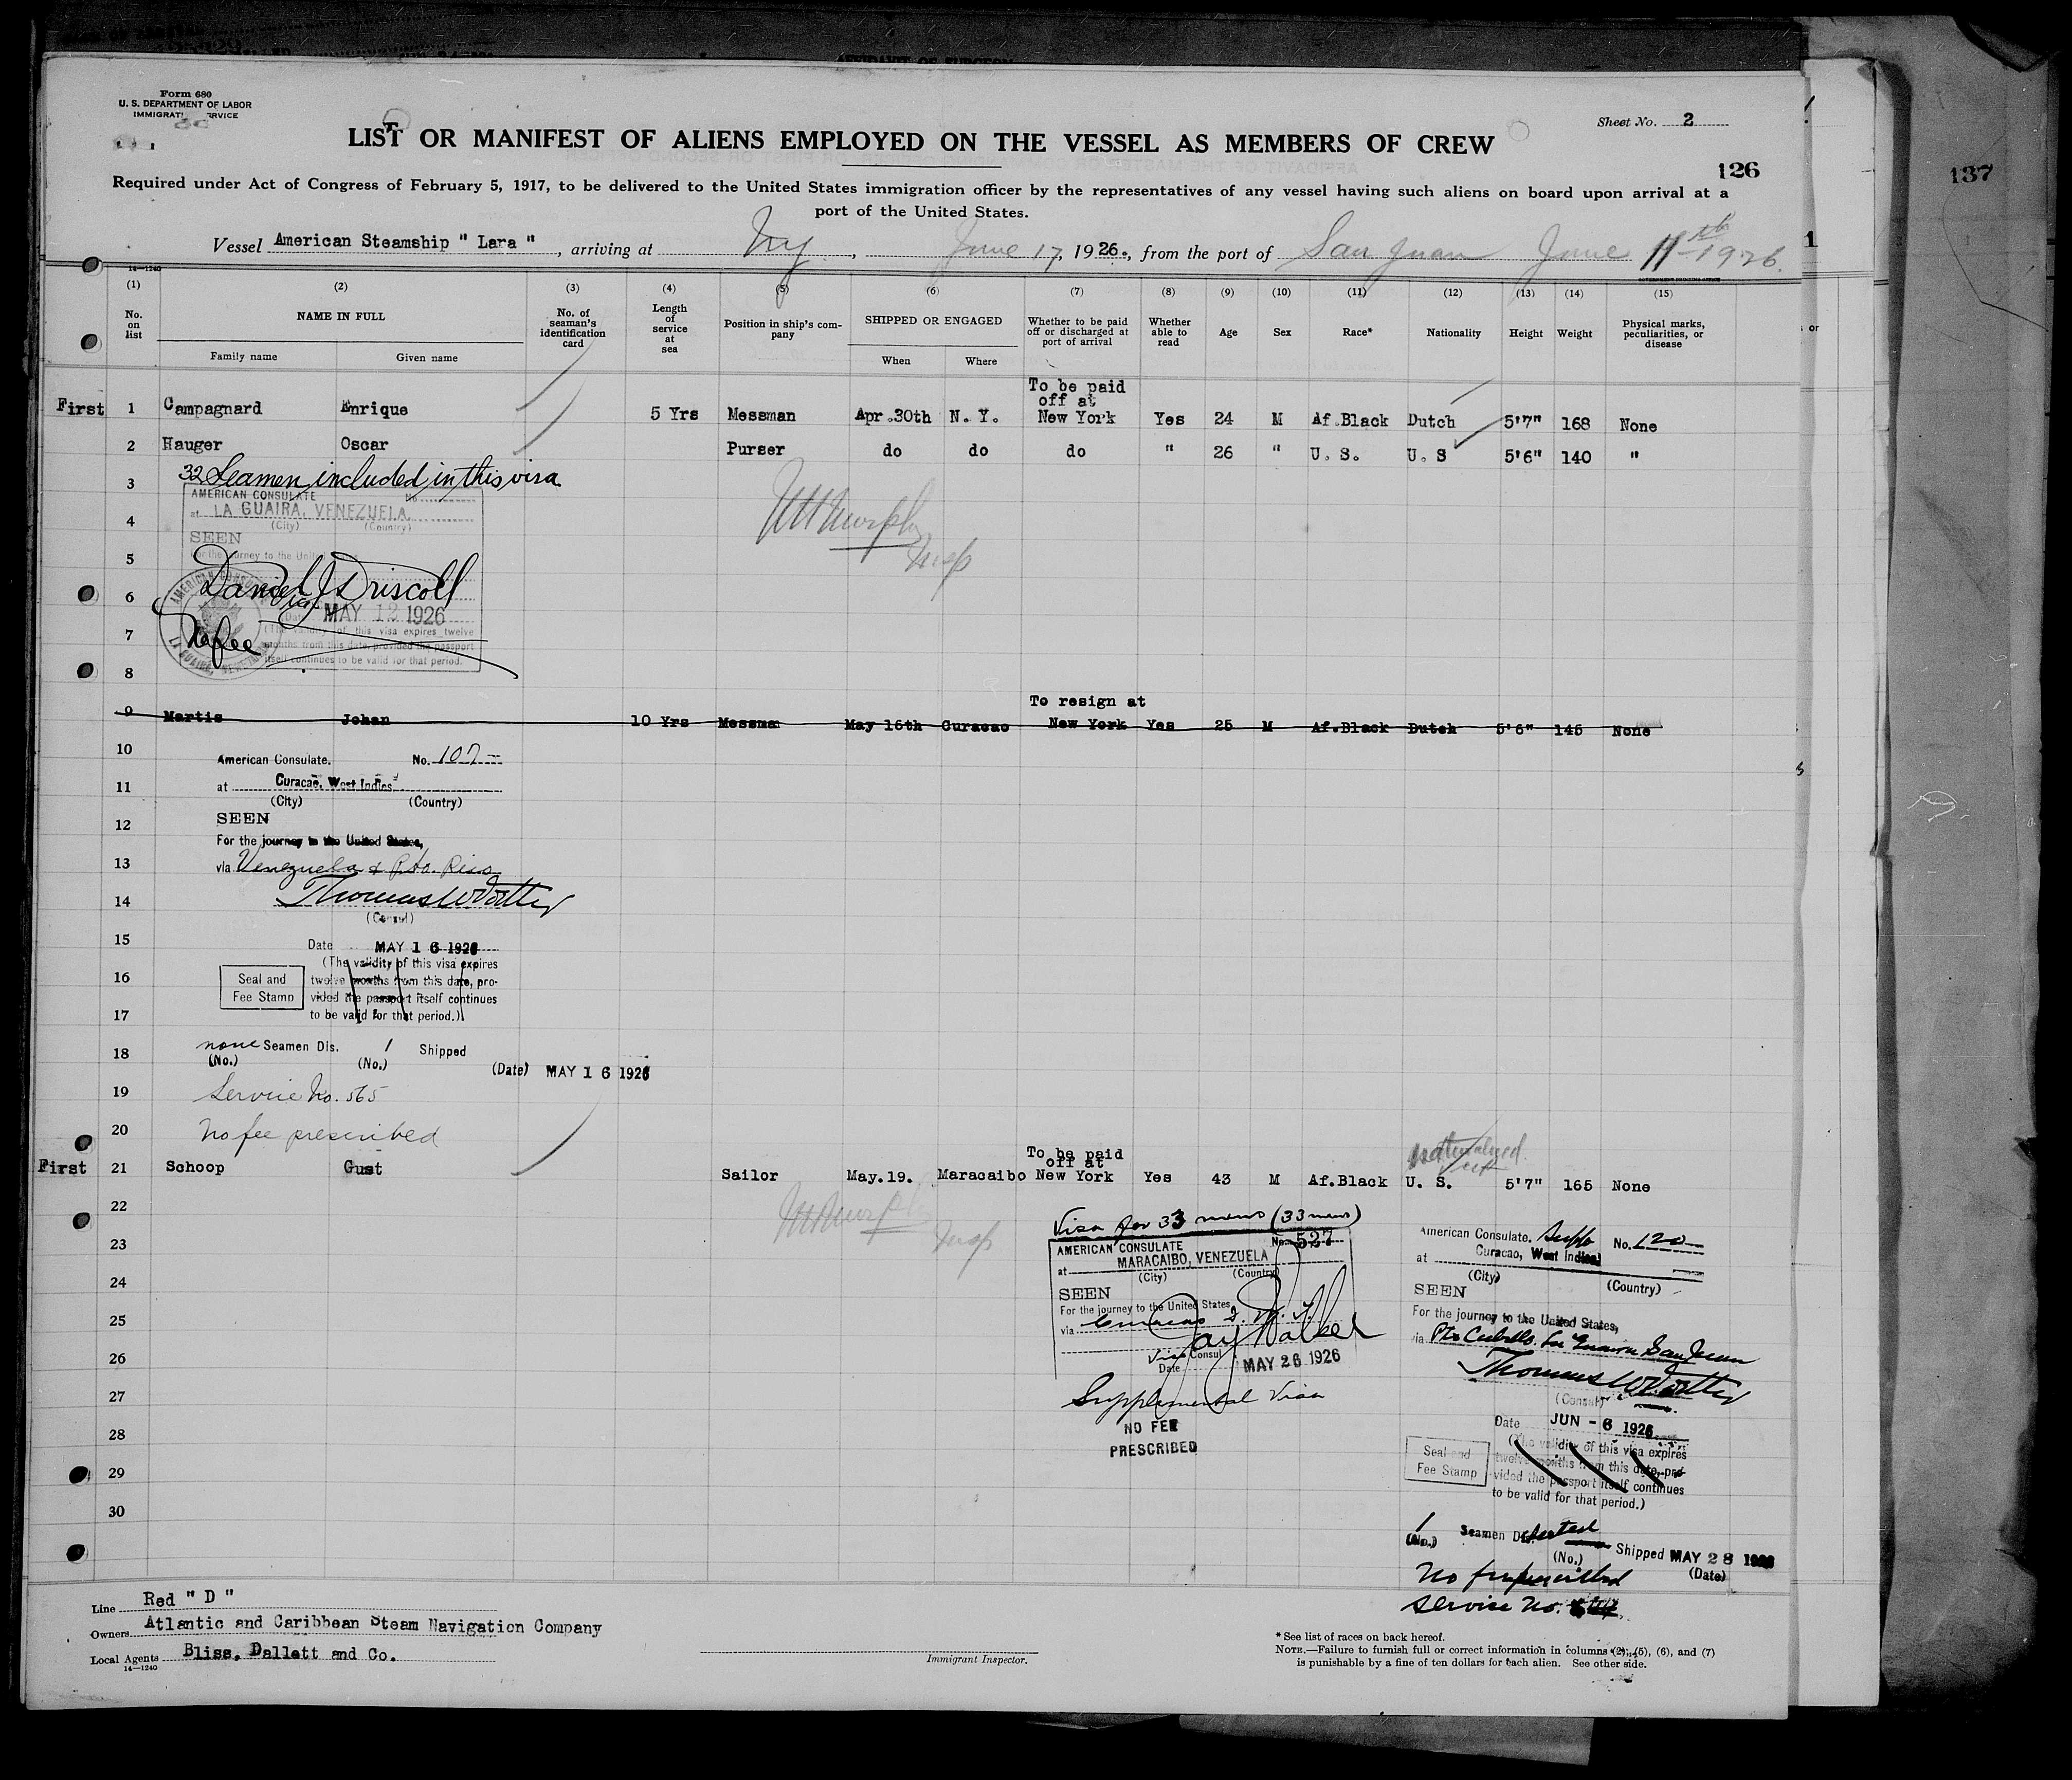 Form 680
U. S. DEPARTMENT OF LABOR
Sheet No. 2
LIST OR MANIFEST OF ALIENS EMPLOYED ON THE VESSEL AS MEMBERS OF CREW
126
137
Required under Act of Congress of February 5, 1917, to be delivered to the United States immigration officer by the representatives of any vessel having such aliens on board upon arrival at a
port of the United States.
Vessel American Steamship " Lara " , arriving at Ny , June 17, 1926., from the port of San Juan June 11th 1926.
14—1240
(1) (2) (3) (4) (5) (6) (7) (8) (9) (10) (11) (12) (13) (14) (15)
No. on list NAME IN FULL Family name Given name No. of seaman's identification card Length of service at sea Position in ship's company SHIPPED OR ENGAGED When Where Whether to be paid off or discharged at port of arrival Whether able to read Age Sex Race* Nationality Height Weight Physical marks, peculiarities, or disease
First 1 Campagnard Enrique 5 Yrs Messman Apr.30th N. Y. To be paid off at New York Yes 24 M Af.Black Dutch 5'7" 168 None
2 Hauger Oscar Purser do do do " 26 " U. S. U. S 5'6" 140 "
3 32 Seamen included in this visa
AMERICAN CONSULATE No
4 at LA GUAIRA, VENEZUELA
(City) (Country)
SEEN
5 For the journey to the United
6 Daniel J Driscoll
MAY 12 1926
7 No fee
(The validity of this visa expires twelve
months from this date, provided the passport
itself continues to be valid for that period.
8
W Murphy
Insp
9 Martis Johan 10 Yrs Messma May 16th Curacao To resign at New York Yes 25 M Af.Black Dutch 5'6" 145 None
10 American Consulate. No. 107
11 at Curacao, West Indies
(City) (Country)
12 SEEN
For the journey to the United States,
13 via Venezuela & Pto. Rico
14
(Consul)
15 Date MAY 16 1926
(The validity of this visa expires
16 Seal and Fee Stamp twelve months from this date, pro-
vided the passport itself continues
17 to be valid for that period.)
18 none Seamen Dis. 1 Shipped
(No.) (No.) (Date) MAY 16 1926
19 Service No. 565
20 No fee prescribed
First 21 Schoop Gust Sailor May.19. Maracaibo To be paid off at New York Yes 43 M Af.Black naturalized U. S. 5'7" 165 None
22
W Murphy
Insp
23
24
25
26
27
28
29
30
Visa for 33 mens (33 mens)
AMERICAN CONSULATE No. 527
at MARACAIBO, VENEZUELA
(City) (Country)
SEEN
For the journey to the United States
via Curacao
Jay Walker
Vice Consul
Date MAY 26 1926
Supplemental Visa
NO FEE
PRESCRIBED
American Consulate. Suppl No. 120
at Curacao, West Indies
(City) (Country)
SEEN
For the journey to the United States,
via Pto Cabello. La Guaira San Juan
(Consul)
Date JUN - 6 1926
(The validity of this visa expires
Seal and Fee Stamp twelve months from this date, pro-
vided the passport itself continues
to be valid for that period.)
1 Seamen Deserted Shipped MAY 28 1926
(No.) (No.) (Date)
No fee prescribed
Service No.
Line Red " D "
Owners Atlantic and Caribbean Steam Navigation Company
Local Agents Bliss, Dallett and Co.
14—1240
Immigrant Inspector.
* See list of races on back hereof.
NOTE.—Failure to furnish full or correct information in columns (2), (5), (6), and (7)
is punishable by a fine of ten dollars for each alien. See other side.